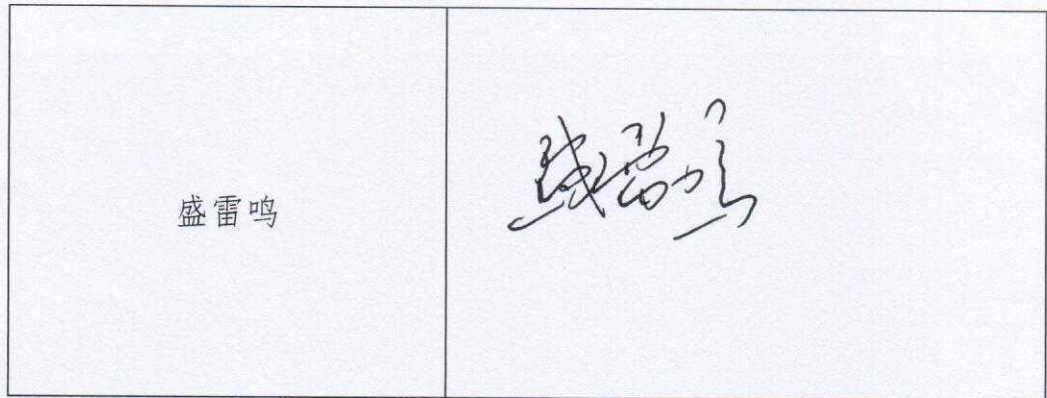 盛雷鸣
盛雷鸣